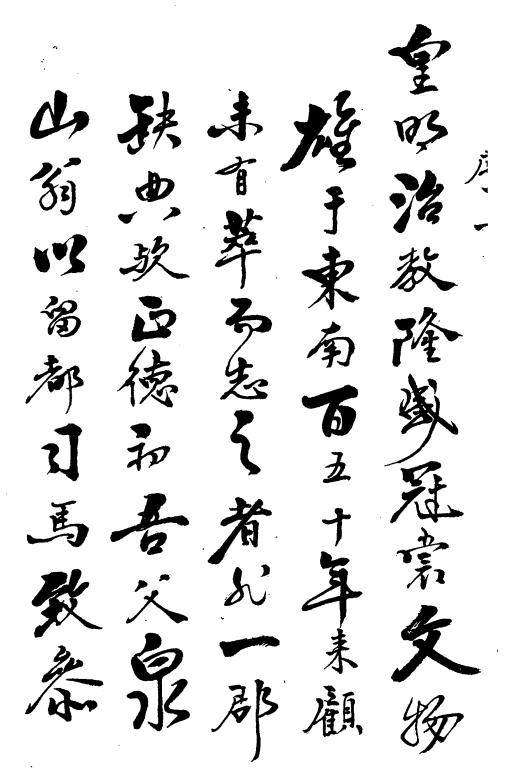 序一
皇明治教隆盛冠裳文物
雄于東南百五十年来顧
未有萃而志之者非一郡
缺典歟正德初吾父泉
山翁以留都司馬致叅